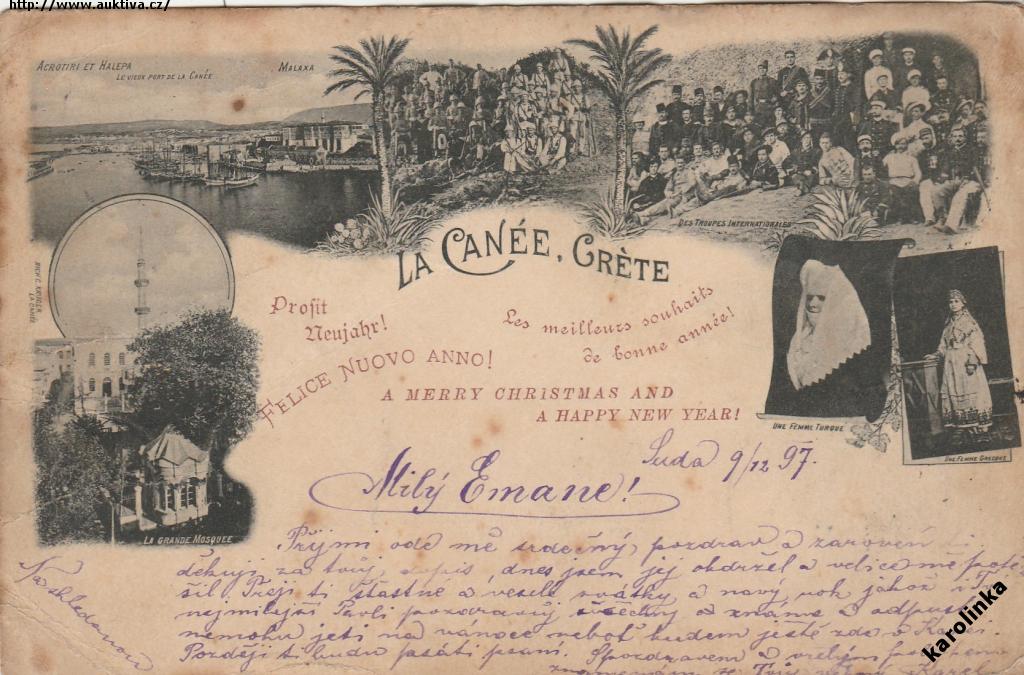 http://www.auktiva.cz/
ACROTIRI ET HALEPA
LE VIEUX PORT DE LA CANÉE
MALAXA
DES TROUPES INTERNATIONALES
LA CANÉE, CRÈTE
LA CANÉE
Profit
Neujahr!
FELICE NUOVO ANNO!
Les meilleurs souhaits
de bonne année!
A MERRY CHRISTMAS AND
A HAPPY NEW YEAR!
UNE FEMME TURQUE
UNE FEMME GRECQUE
LA GRANDE MOSQUEE
Suda 9/12 97.
Milý Emane!
Přijmi ode mě srdečný pozdrav a zároveň ti
děkuji za tvůj dopis, dnes jsem jej obdržel a velice mě potě
šil. Přeji ti šťastné a veselé svátky a nový rok jakož i
nejmilejší pozdravuj všechny a známé a odpusť
nemohu jeti na vánoce neboť budem ještě zde
Později ti budu psáti psaní. S pozdravem a
Tvůj Karel
Na shledanou
karolinka